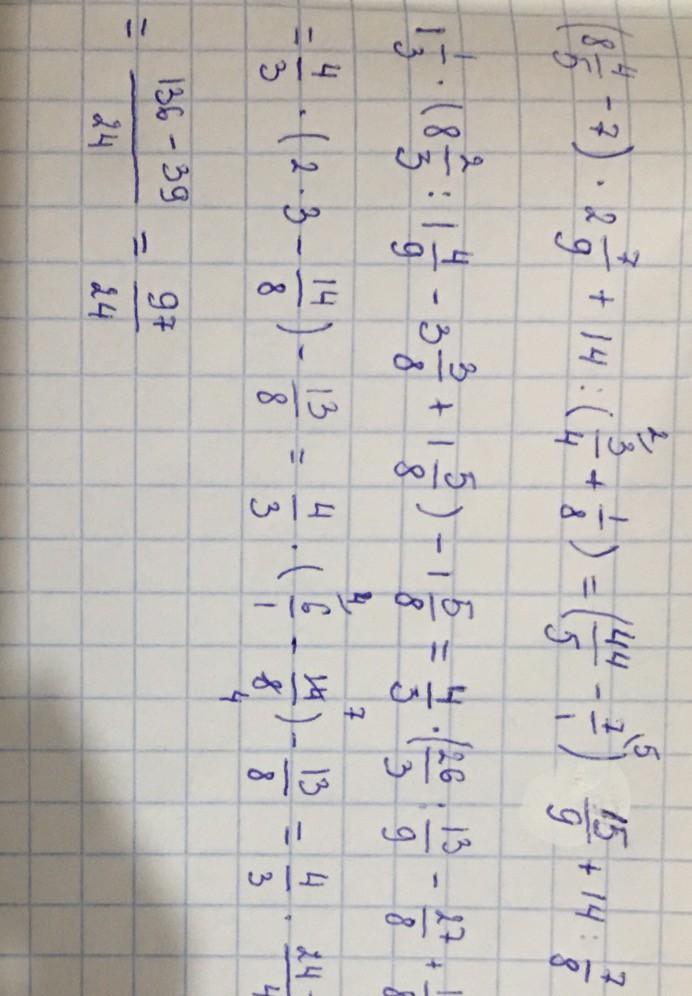 (8 4/5 - 7) · 2 7/9 + 14 : (3/4 ² + 1/8) = (44/5 - 7/1 ⁵) 15/9 + 14 : 7/8
1 1/3 · (8 2/3 : 1 4/9 - 3 3/8 + 1 5/8) - 1 5/8 = 4/3 · (26/3 : 13/9 - 27/8 + 1
= 4/3 · (2 · 3 - 14/8) - 13/8 = 4/3 · (6/1 ⁴ - 14/8 7/4) - 13/8 = 4/3 · 24
= 136 - 39/24 = 97/24